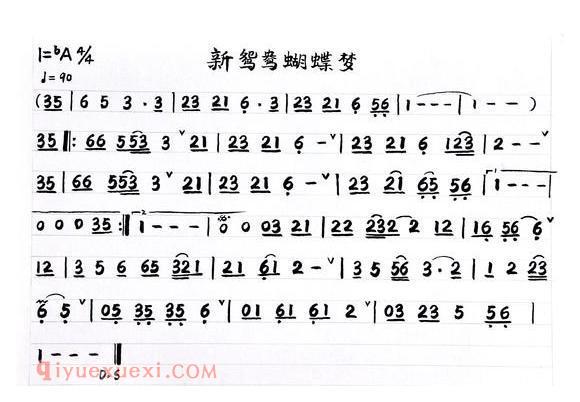 新鸳鸯蝴蝶梦
1=ᵇA 4/4
♩=90
(35 | 6 5 3 · 3 | 23 21 6 · 3 | 23 21 6 56 | 1 - - - | 1 - - )
35 ‖: 66 553 3 ˅ 21 | 23 21 6 - ˅ | 23 21 6 123 | 2 - - ˅
35 | 66 553 3 ˅ 21 | 23 21 6 - ˅ | 23 21 65 56 | 1. 1 - - -
0 0 0 35 :‖ 2. 1 - - - | 0 0 03 21 | 22 232 2 12 | 16 56 6 ˅
12 | 3 5 6 65 321 | 21 61 2 - ˅ | 3 5 56 3·2 | 1 2 23
6 5 ˅ | 05 35 35 6 ˅ | 01 61 61 2 ˅ | 03 23 5 56 |
1 - - - ‖
D.S
qiyuexuexi.com(器乐学习网)